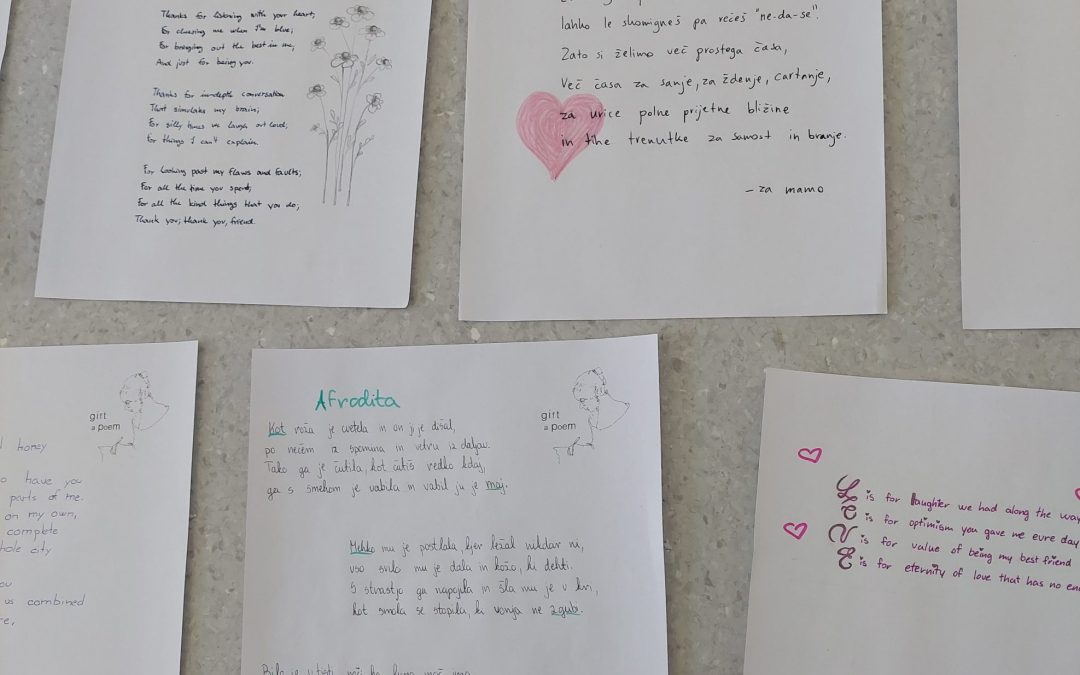 Thanks for listening with your heart;
For cheering me when I'm blue;
For bringing out the best in me;
And just for being you.
Thanks for in-depth conversation
That simulates my brain;
For silly times we laugh out loud;
For things I can't explain.
For looking past my flaws and faults;
For all the time you spent;
For all the kind things that you do;
Thank you; thank you, friend.
lahko le skomigneš pa rečeš "ne-da-se".
Zato si želimo več prostega časa,
Več časa za sanje, za ždenje, cartanje,
za urice polne prijetne bližine
in tihe trenutke za samost in branje.
- za mamo
honey
have you
parts of me.
on my own,
complete
city
us combined
gift
a poem
Afrodita
Kot roža je cvetela in on ji je dišal,
po nečem iz spomina in vetru iz daljav.
Tako ga je čutila, kot čutiš redko kdaj,
ga s smehom je vabila in vabil ju je maj.
Mehko mu je postlala, kjer ležal nikdar ni,
vso svilo mu je dala in kožo, ki dehti.
S strastjo ga napojila in šla mu je v kri,
kot smola se stopila, ki vonja ne zgubi.
gift
a poem
L is for laughter we had along the way
O is for optimism you gave me eure day
V is for value of being my best friend
E is for eternity of love that has no